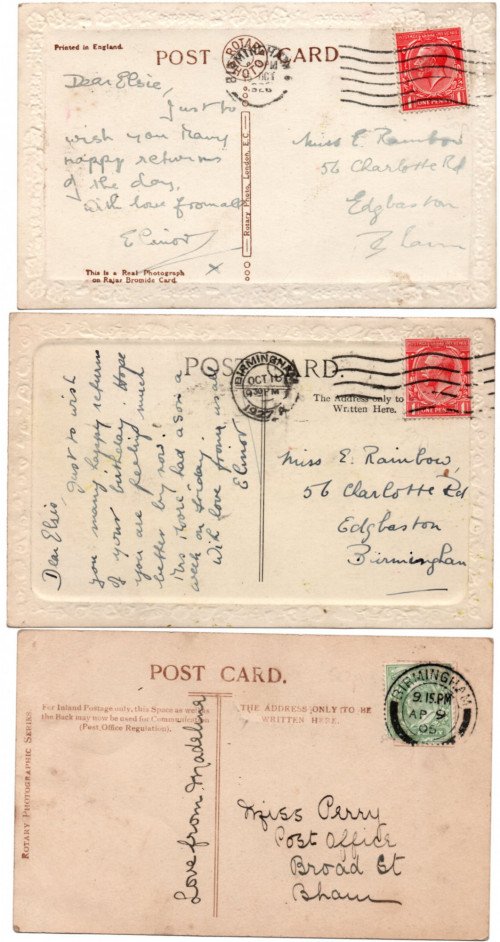 Printed in England.
POST CARD.
BIRMINGHAM
OCT
1926
ONE PENNY
Dear Elsie,
Just to
wish you Many
happy returns
of the day,
With love from all
Elinor
x
Rotary Photo, London, E.C.
ROTARY PHOTO
Miss E. Rainbow
56 Charlotte Rd
Edgbaston
B'ham
This is a Real Photograph
on Rajar Bromide Card.
POST CARD.
BIRMINGHAM
OCT 16
6 30 PM
1927
ONE PENNY
The Address only to be
Written Here.
Dear Elsie, Just to wish
you many happy returns
of your birthday. Hope
you are feeling much
better by now.
had a Son a
week on Friday.
With love from us all
Elinor
Miss E. Rainbow,
56 Charlotte Rd
Edgbaston
Birmingham
POST CARD.
For Inland Postage only, this Space as well as
the Back may now be used for Communication
(Post Office Regulation).
THE ADDRESS ONLY TO BE
WRITTEN HERE.
BIRMINGHAM
9.15.PM
AP 9
05
ROTARY PHOTOGRAPHIC SERIES.
Love from Madeline
Miss Perry
Post Office
Broad St
Bham